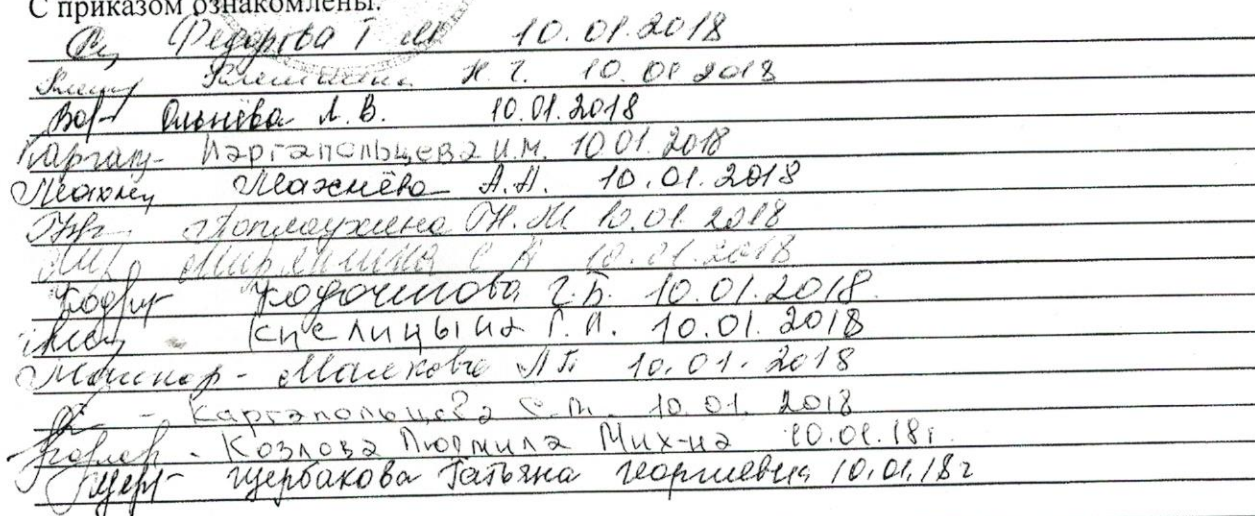 С приказом ознакомлены.
Федорова Т М 10.01.2018
Н. Г. 10.01 2018
Ольнёва Л. В. 10.01.2018
Каргапольцева И.М. 10 01. 2018
Махнёва А.Н. 10.01.2018
Поплаухина Н. М 10.01 2018
С А 10.01.2018
Ходочинова Г.Б. 10.01.2018.
Кислицына Г. П. 10.01. 2018
Малкова Л Б 10.01.2018
- Каргапольцева С. М. 10.01. 2018
- Козлова Людмила Мих-на 10.01.18г.
Щербакова Татьяна Георгиевна 10.01.18г